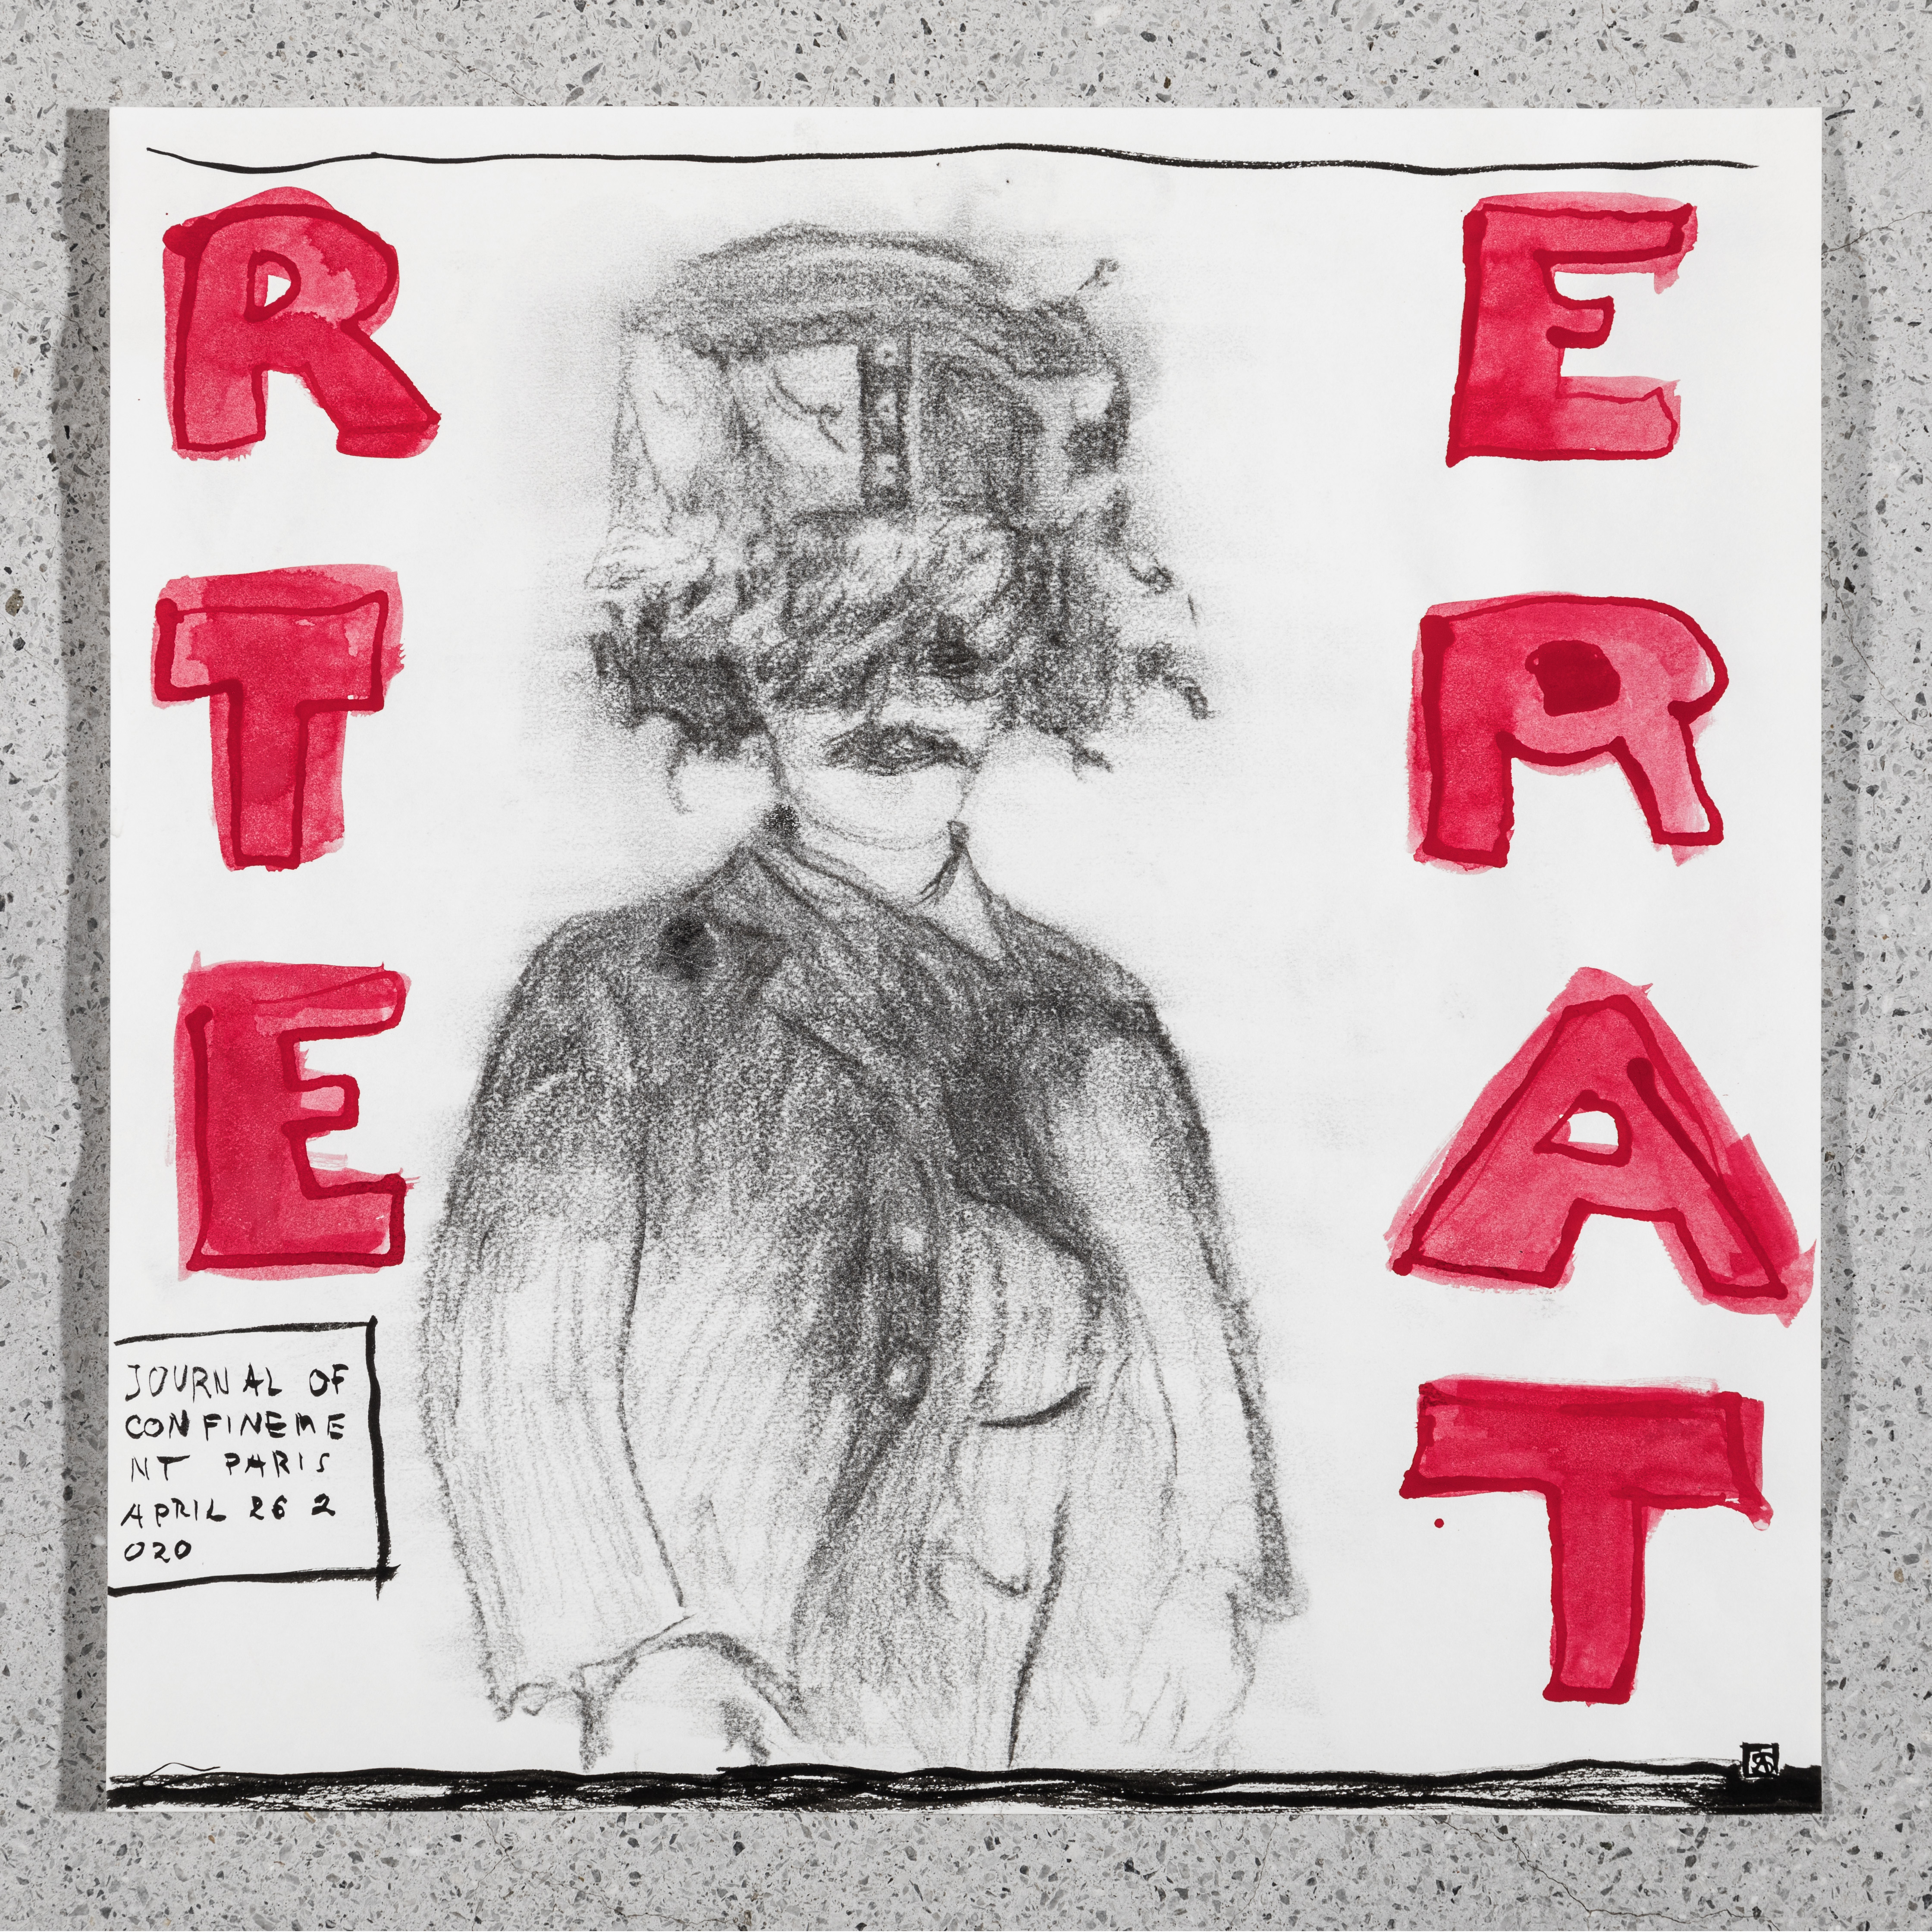 R E
T R
E A
T
JOURNAL OF
CONFINEME
NT PARIS
APRIL 26 2
020